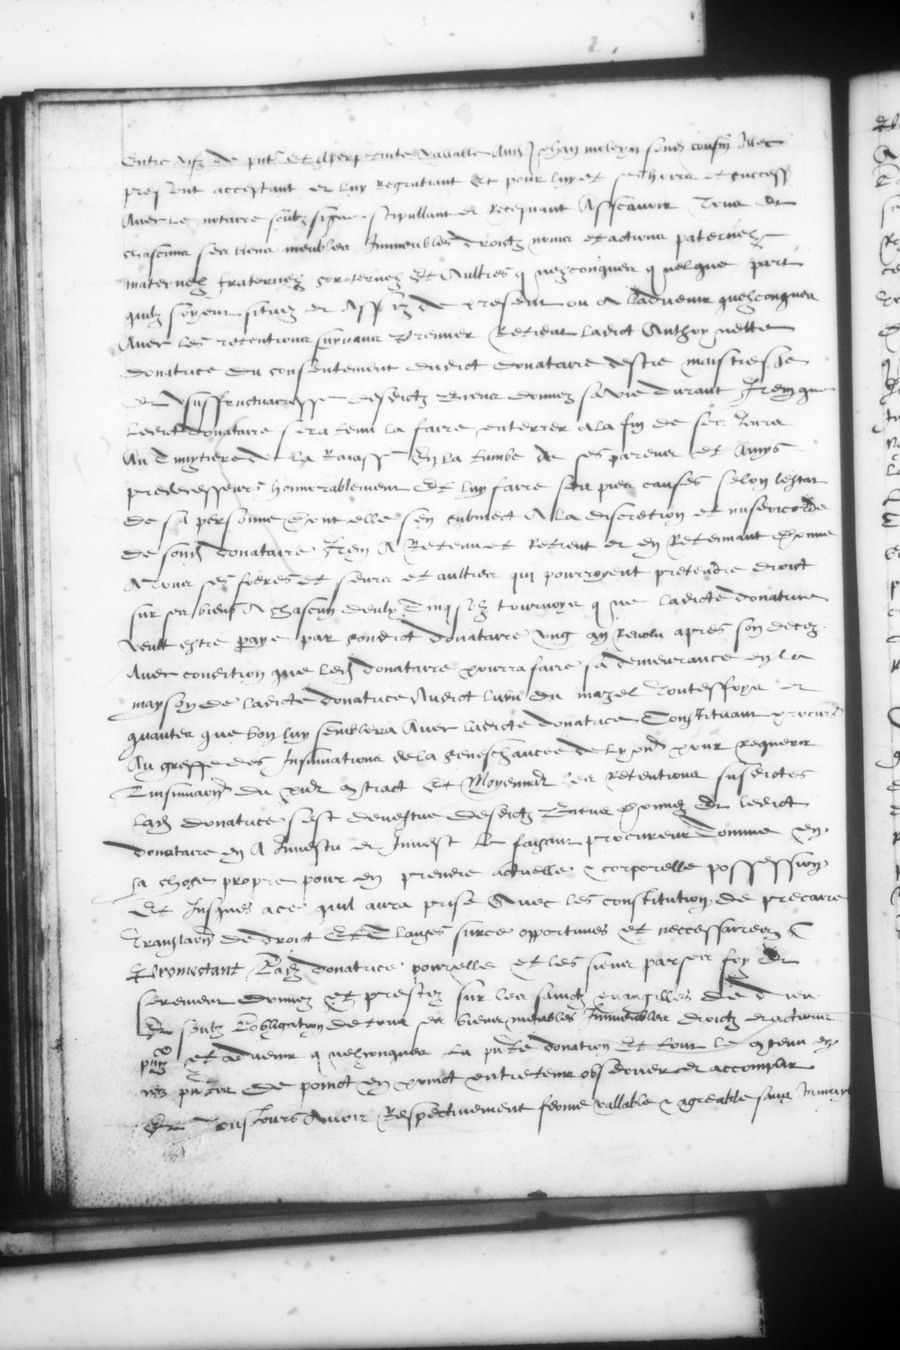 Entre vifz de pnt et aperpetuite vallable Aud Jehan mileyn sond cousin Illec
present acceptant et luy regratiant Et pour luy et ses hoirs et success
Avec le notaire soubz signe stipullant et recepvant Assavoir Tous et
chascuns ses biens meubles Immeubles droictz noms et actions paternelz
maternelz fraternelz sororternelz Et Aultres quelzconques quelque part
quilz soyent situez et Assis de present ou a ladvenir quelzconques
Avec les retentions suyvans Premier Retient ladict Anthoynette
donatrice du consentement dudict donataire destre maistresse
et Usuffructuaresse desdictz biens donnez sa vie durant Item que
ledict donataire sera tenu la faire enterrer a la fin de ses Jours
Au Cimytiere de la En la tumbe de ses parens et Amys
predecesseurs honnorablement Et luy faire ses pies causes selon lestat
de sa personne dont elle sen submect A la discretion et misericorde
de sond donataire Item A Retenu et Retient et en Retenant donne
A Tous ses freres et seurs et aultres qui pourroyent pretendre droict
sur ses biens A chascun deulx Cinq solz tournoys que ladicte donatrice
veult estre paye par sondict donataire ung an Revolu apres son decez
Avec condition que led donataire pourra faire sa demeurance en la
mayson de ladicte donatrice Audict lieu du mazel et
quantes que bon luy semblera Avec ladicte donatrice Constituant procur
Au greffe des Insinuations de la Seneschaucee de Lyon pour requerir
Linsinuaon du pnt extraict Et Moyennant les Retentions susdictes
lad donatrice sest devestue desdictz Biens donnez Et ledict
donataire en A Investu et Invest Le faisant procureur Comme en
sa chose propre pour en prendre actuelle & corporelle possession
Et Jusques ace quil aura prise Avec les constitution de precaire
Translaon de droict Et Clauses surce opportunes et necessaires
Promectant Lad donatrice pour elle et les siens par ses foy Et
serement donnez Et prestez sur les sainctz evangilles de Dieu
Et soubz Lobligation de tous ses biens meubles Immeubles droictz et actions
pntz et advenir quelzconques La pnte donation Et tout le contenu en
ces pntes de poinct en poinct entretenir observer et accomplir
Et Tousjours Avoir Respectivement ferme vallable & agreable sans Jamays